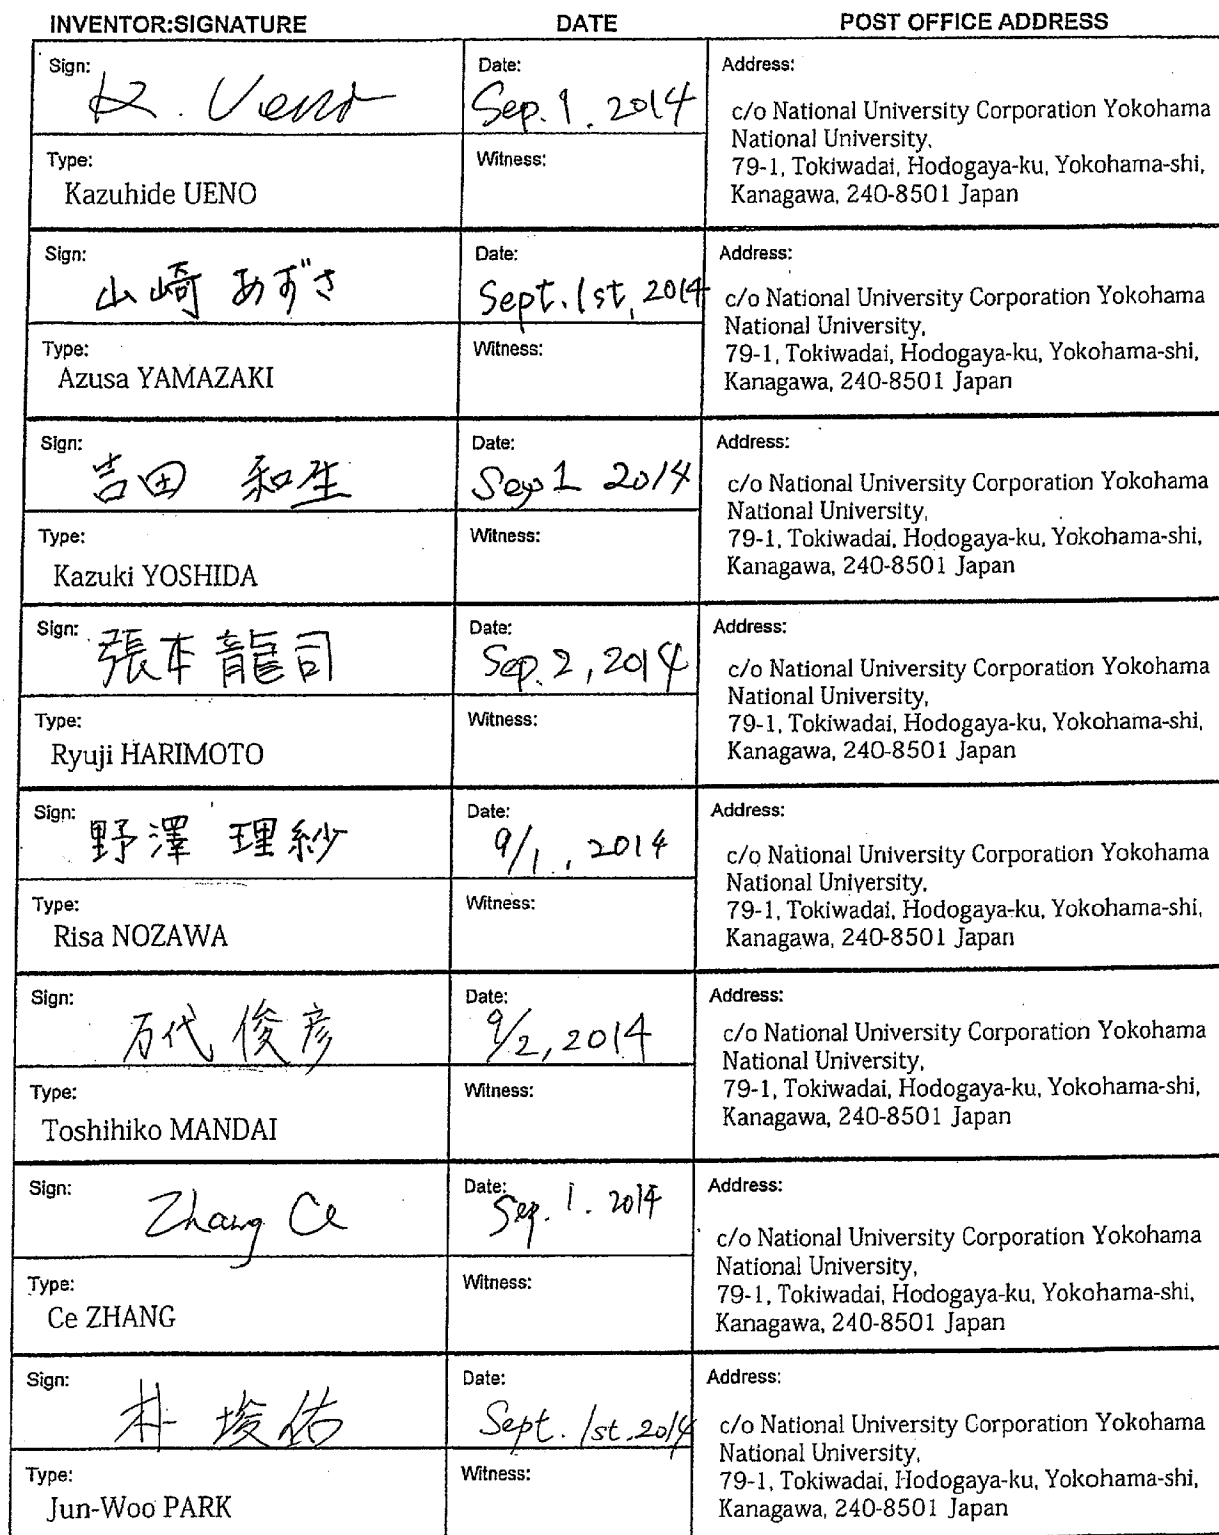 INVENTOR:SIGNATURE DATE POST OFFICE ADDRESS
Sign: K. Ueno
Date: Sep. 1. 2014
Address:
c/o National University Corporation Yokohama
National University,
79-1, Tokiwadai, Hodogaya-ku, Yokohama-shi,
Kanagawa, 240-8501 Japan
Type:
Kazuhide UENO
Witness:
Sign: 山崎 あずさ
Date: Sept. 1st, 2014
Address:
c/o National University Corporation Yokohama
National University,
79-1, Tokiwadai, Hodogaya-ku, Yokohama-shi,
Kanagawa, 240-8501 Japan
Type:
Azusa YAMAZAKI
Witness:
Sign: 吉田 和生
Date: Sep 1 2014
Address:
c/o National University Corporation Yokohama
National University,
79-1, Tokiwadai, Hodogaya-ku, Yokohama-shi,
Kanagawa, 240-8501 Japan
Type:
Kazuki YOSHIDA
Witness:
Sign: 張本龍司
Date: Sep. 2, 2014
Address:
c/o National University Corporation Yokohama
National University,
79-1, Tokiwadai, Hodogaya-ku, Yokohama-shi,
Kanagawa, 240-8501 Japan
Type:
Ryuji HARIMOTO
Witness:
Sign: 野澤 理紗
Date: 9/1, 2014
Address:
c/o National University Corporation Yokohama
National University,
79-1, Tokiwadai, Hodogaya-ku, Yokohama-shi,
Kanagawa, 240-8501 Japan
Type:
Risa NOZAWA
Witness:
Sign: 万代 俊彦
Date: 9/2, 2014
Address:
c/o National University Corporation Yokohama
National University,
79-1, Tokiwadai, Hodogaya-ku, Yokohama-shi,
Kanagawa, 240-8501 Japan
Type:
Toshihiko MANDAI
Witness:
Sign: Zhang Ce
Date: Sep. 1. 2014
Address:
c/o National University Corporation Yokohama
National University,
79-1, Tokiwadai, Hodogaya-ku, Yokohama-shi,
Kanagawa, 240-8501 Japan
Type:
Ce ZHANG
Witness:
Sign: 朴 埈佑
Date: Sept. 1st. 2014
Address:
c/o National University Corporation Yokohama
National University,
79-1, Tokiwadai, Hodogaya-ku, Yokohama-shi,
Kanagawa, 240-8501 Japan
Type:
Jun-Woo PARK
Witness: